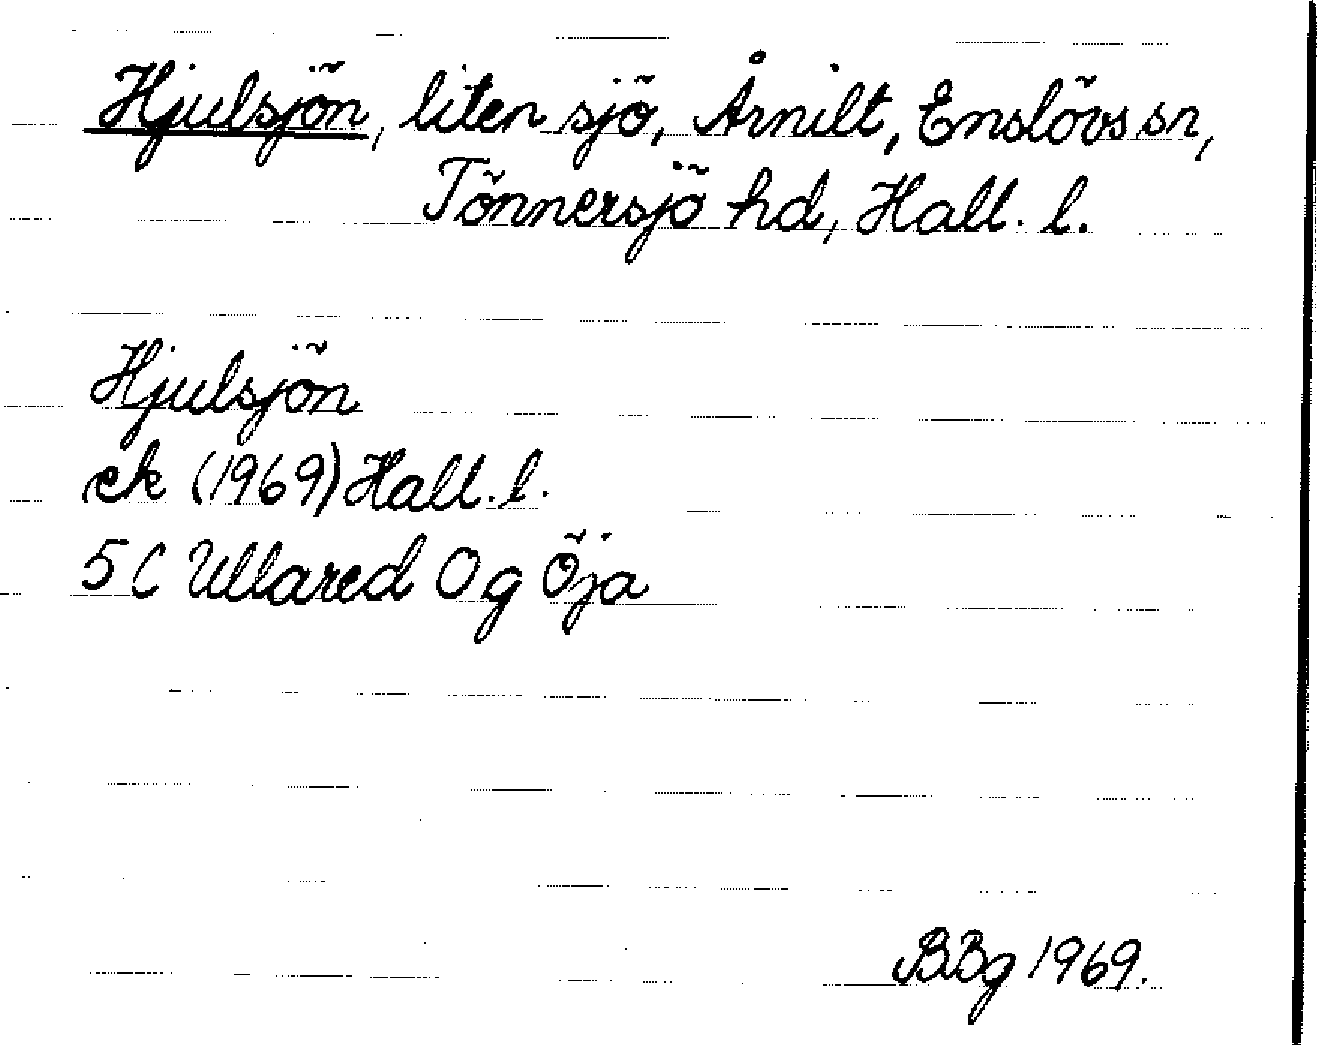 Hjulsjön, liten sjö, Årnilt, Enslövs sn,
Tönnersjö hd, Hall. l.
Hjulsjön
ek (1969) Hall. l.
5C Ullared 0g Öja
BBg 1969.